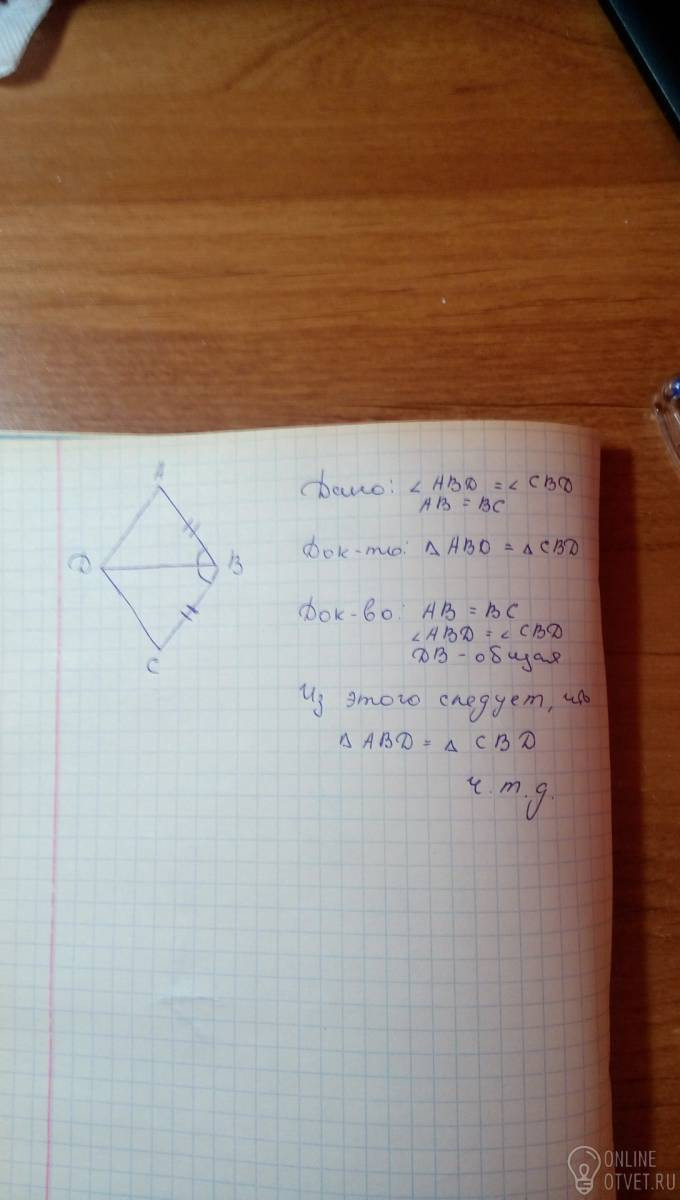 A
D
B
C
Дано: ∠ ABD = ∠ CBD
AB = BC
Док-ть: △ ABD = △ CBD
Док-во: AB = BC
∠ABD = ∠ CBD
DB - общая
Из этого следует, что
△ ABD = △ CBD
ч. т. д.
ONLINE
OTVET.RU